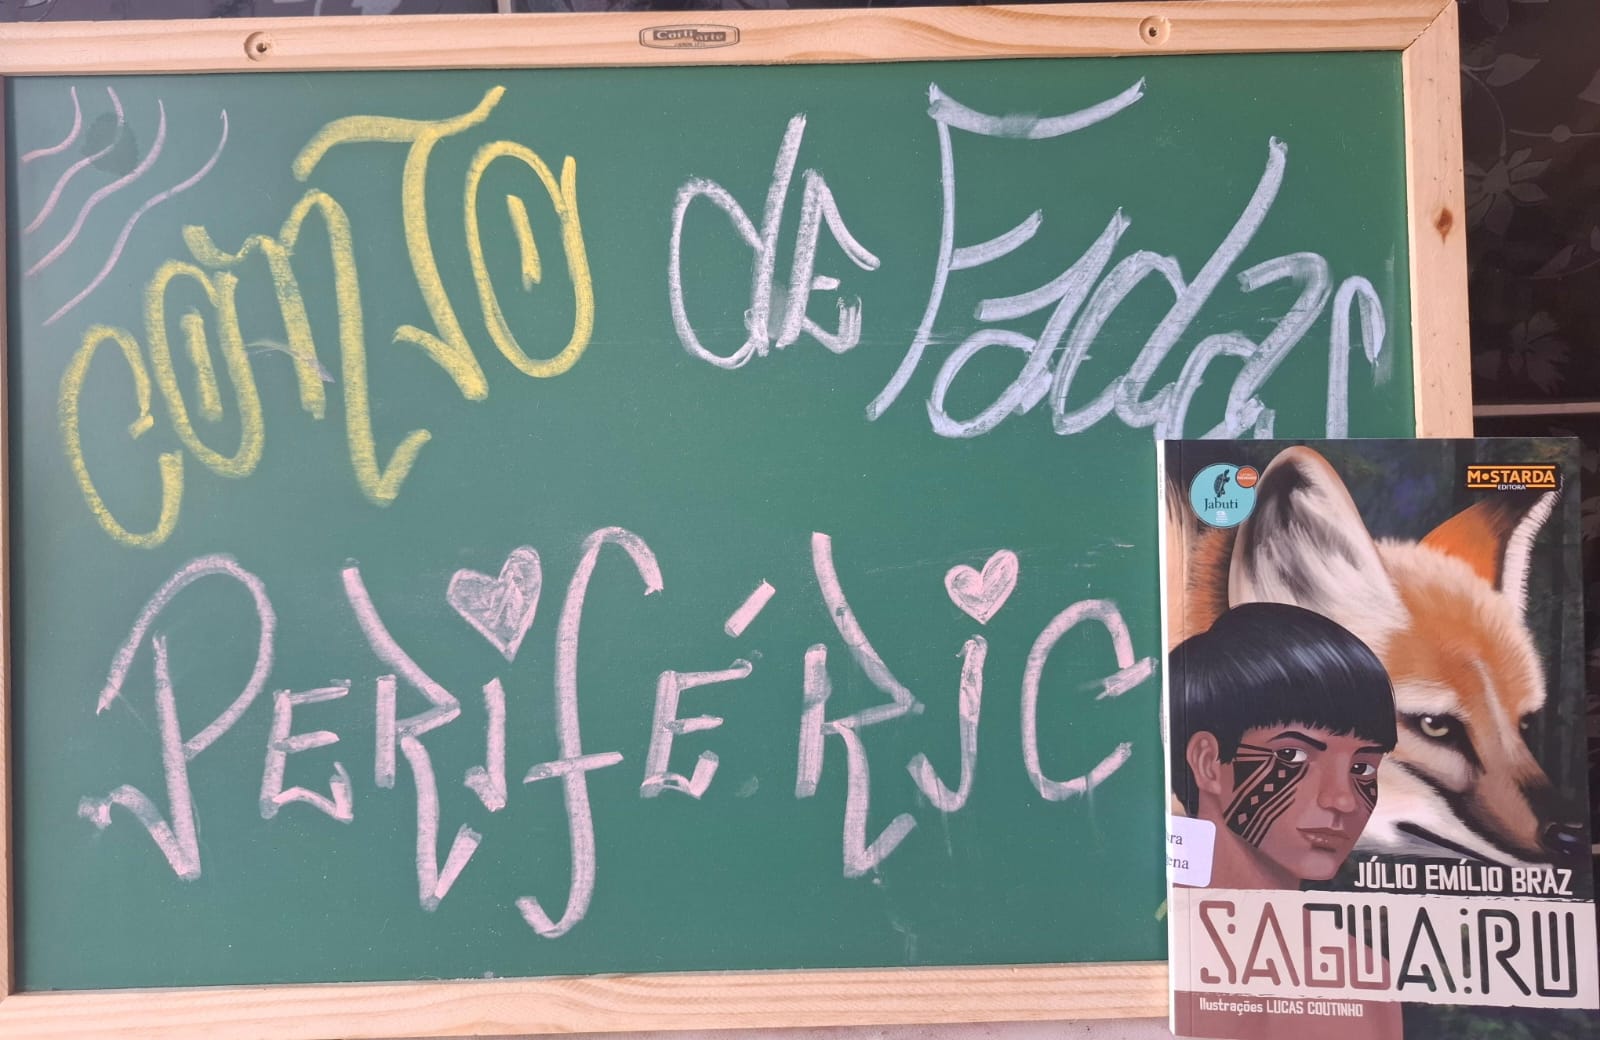 Corti arte
CONTO de Fadas
PERIFÉRIC
Jabuti
MOSTARDA
EDITORA
JÚLIO EMÍLIO BRAZ
SAGUAIRU
Ilustrações LUCAS COUTINHO